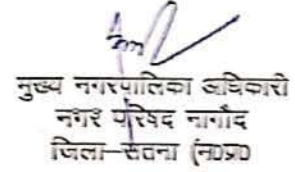 मुख्य नगरपालिका अधिकारी
नगर परिषद नागौद
जिला–सतना (म0प्र0